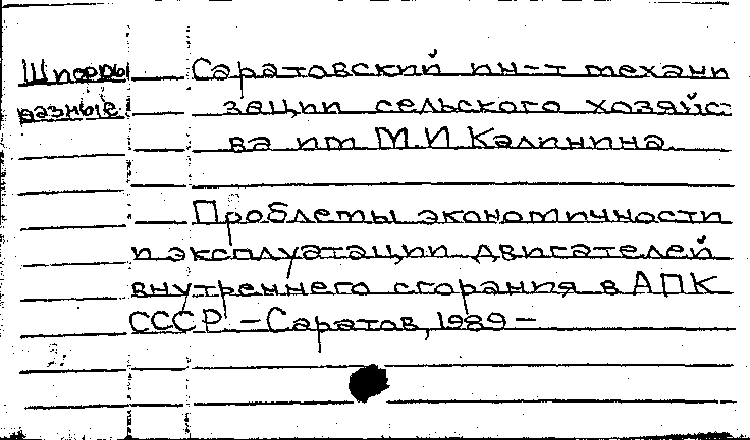 Шпоры Саратовский ин-т механи
разные зации сельского хозяйс-
ва им М.И Калинина
Проблемы экономичности
и эксплуатации двигателей
внутреннего сгорания в АПК
СССР. – Саратов, 1989 –